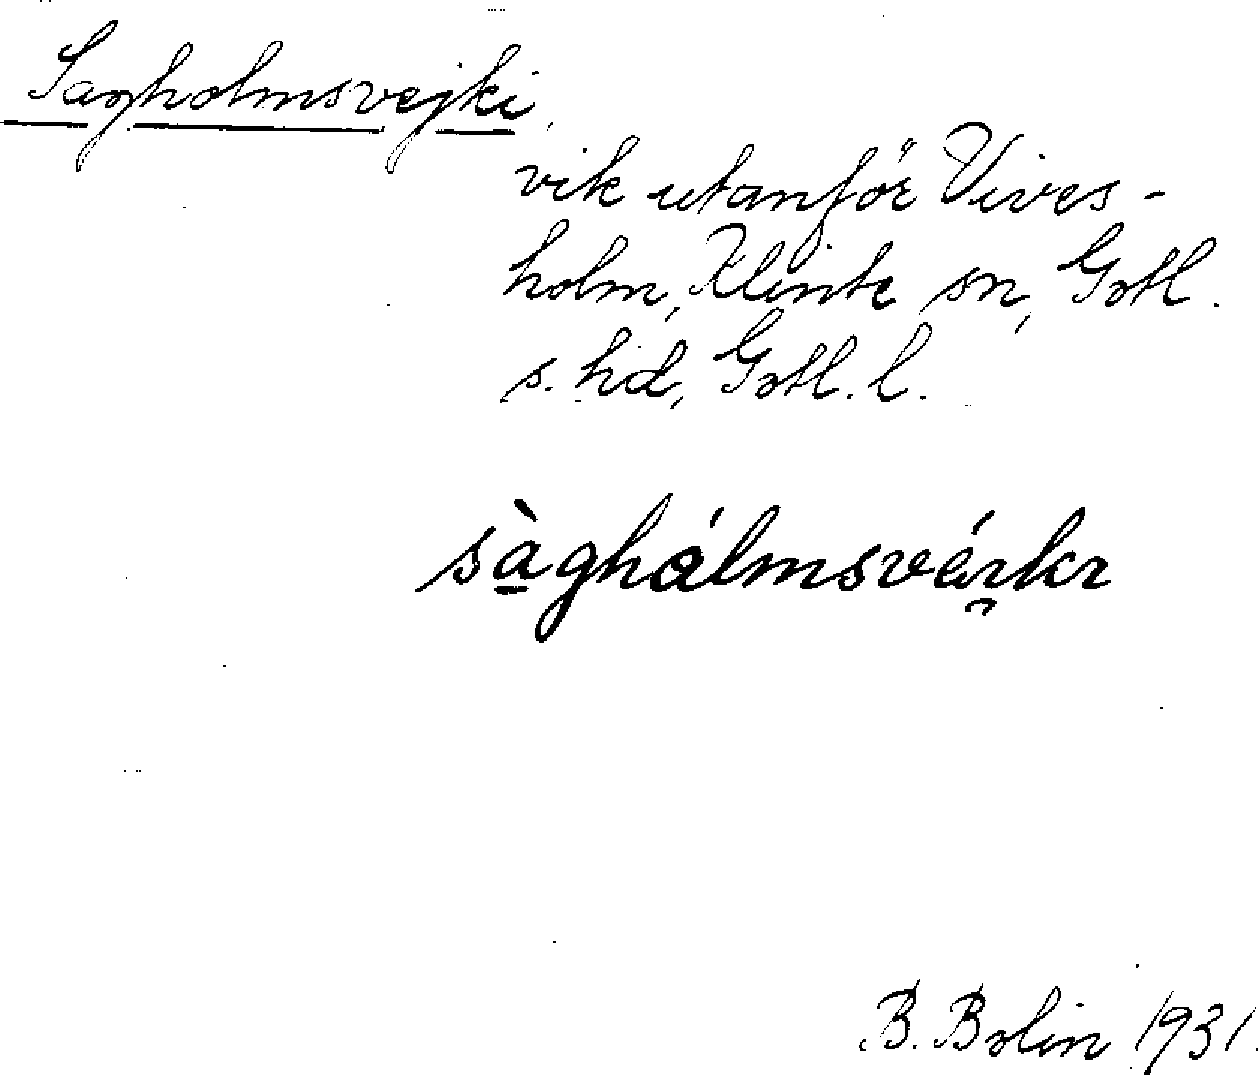 Sagholmsvejki,
vik utanför Vives-
holm, Klinte sn, Gotl.
s. hd, Gotl. l.
sàghálmsváɪ̯kɪ
B. Bolin 1931.